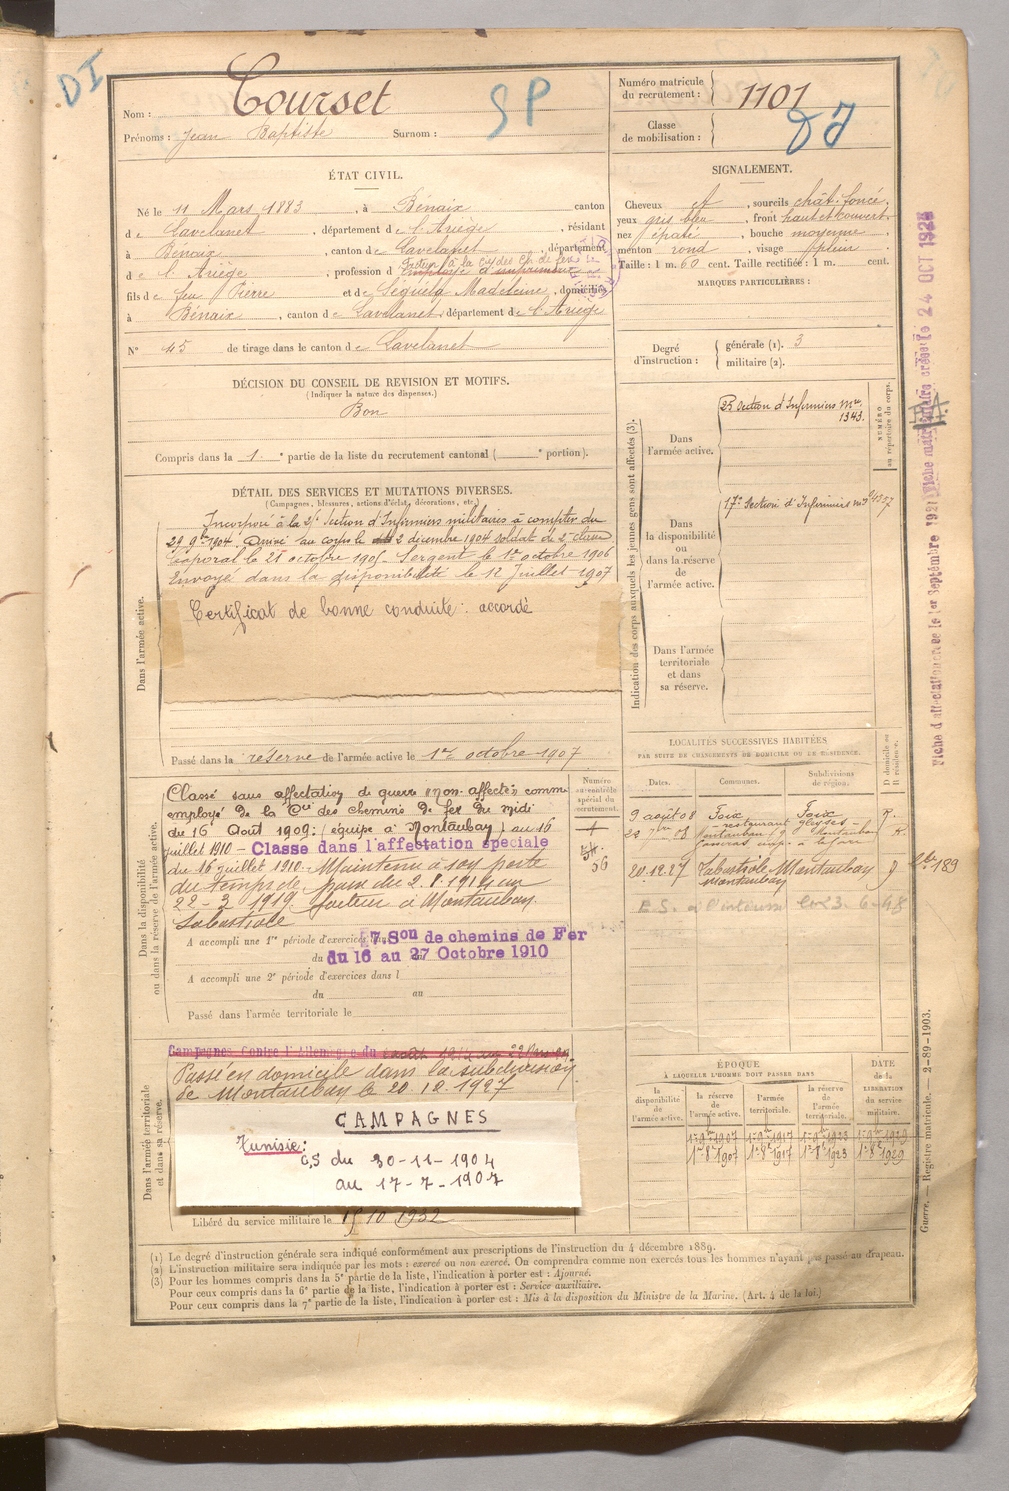 DI
SP
Nom : Courset
Prénoms : Jean Baptiste Surnom :
Numéro matricule du recrutement : 1101
Classe de mobilisation :
ÉTAT CIVIL.
Né le 11 Mars 1883, à Bénaix canton
de Lavelanet, département de l'Ariège, résidant
à Bénaix, canton de Lavelanet, département
de l'Ariège, profession d
fils de feu Pierre et de Séguéla Madeleine, domiciliés
à Bénaix, canton de Lavelanet, département de l'Ariège
N° 45 de tirage dans le canton de Lavelanet
SIGNALEMENT.
Cheveux et, sourcils chât. foncé
yeux gris bleu, front haut et couvert
nez épaté, bouche moyenne
menton rond, visage plein
Taille : 1 m. 60 cent. Taille rectifiée : 1 m. cent.
MARQUES PARTICULIÈRES :
Degré d'instruction : générale (1). 3
militaire (2).
DÉCISION DU CONSEIL DE REVISION ET MOTIFS.
(Indiquer la nature des dispenses.)
Bon
Compris dans la 1e partie de la liste du recrutement cantonal ( e portion).
DÉTAIL DES SERVICES ET MUTATIONS DIVERSES.
(Campagnes, blessures, actions d'éclat, décorations, etc.)
Dans l'armée active.
Incorporé à la Section d'Infirmiers militaires à compter du
29 9bre 1904. Arrivé au corps le 2 décembre 1904 soldat de 2e classe
Caporal le 21 octobre 1905. Sergent le 1er octobre 1906
Envoyé dans la disponibilité le 12 Juillet 1907
Certificat de bonne conduite : accordé
Passé dans la réserve de l'armée active le 1er octobre 1907
Indication des corps auxquels les jeunes gens sont affectés (3).
NUMÉRO au répertoire du corps.
Dans l'armée active.
Section d'Infirmiers Mres
1343.
Dans la disponibilité ou dans la réserve de l'armée active.
17e Section d'Infirmiers
Dans l'armée territoriale et dans sa réserve.
Fiche matriculaire créée le 24 OCT 1928
Fiche d'affectation créée le 1er Septembre 1921
Dans la disponibilité ou dans la réserve de l'armée active.
Classé sans affectation de guerre "Non-affectés" comme
employé de la Cie des chemins de fer du Midi
du 16 Août 1909 : (équipe à Montauban) au 16
juillet 1910 - Classé dans l'affectation spéciale
du 16 juillet 1910 - Maintenu à son poste
du temps de paix du 2.8.1914 au
22-3 1919. facteur à Montauban
A accompli une 1re période d'exercices 7 Son de chemins de Fer
du 16 au 27 Octobre 1910
A accompli une 2e période d'exercices dans l
du au
Passé dans l'armée territoriale le
Numéro au contrôle spécial du recrutement.
36
LOCALITÉS SUCCESSIVES HABITÉES
PAR SUITE DE CHANGEMENTS DE DOMICILE OU DE RÉSIDENCE.
Dates. Communes. Subdivisions de région. D domicile ou R résidence.
9 août 08 Foix Foix R.
Montauban Montauban R.
20.12.27 Montauban
Montauban
Dans l'armée territoriale et dans sa réserve.
Campagnes Contre l'Allemagne du
Passé en domicile dans la subdivision
de Montauban le 20 10 1927
CAMPAGNES
Tunisie :
CS du 30-11-1904
au 17-7-1907
Libéré du service militaire le 15 10 1932
ÉPOQUE
À LAQUELLE L'HOMME DOIT PASSER DANS
la disponibilité de l'armée active. la réserve de l'armée active. l'armée territoriale. la réserve de l'armée territoriale.
DATE de la LIBÉRATION du service militaire.
1er 9bre 1907 1er 9bre 1917 1er 9bre 1923 1er 9bre 1929
1er 8bre 1907 1er 8bre 1917 1er 8bre 1923 1er 8bre 1929
Guerre. — Registre matricule. — 2-89-1903.
(1) Le degré d'instruction générale sera indiqué conformément aux prescriptions de l'instruction du 4 décembre 1889.
(2) L'instruction militaire sera indiquée par les mots : exercé ou non exercé. On comprendra comme non exercés tous les hommes n'ayant pas passé au drapeau.
(3) Pour les hommes compris dans la 5e partie de la liste, l'indication à porter est : Ajourné.
Pour ceux compris dans la 6e partie de la liste, l'indication à porter est : Service auxiliaire.
Pour ceux compris dans la 7e partie de la liste, l'indication à porter est : Mis à la disposition du Ministre de la Marine. (Art. 4 de la loi.)